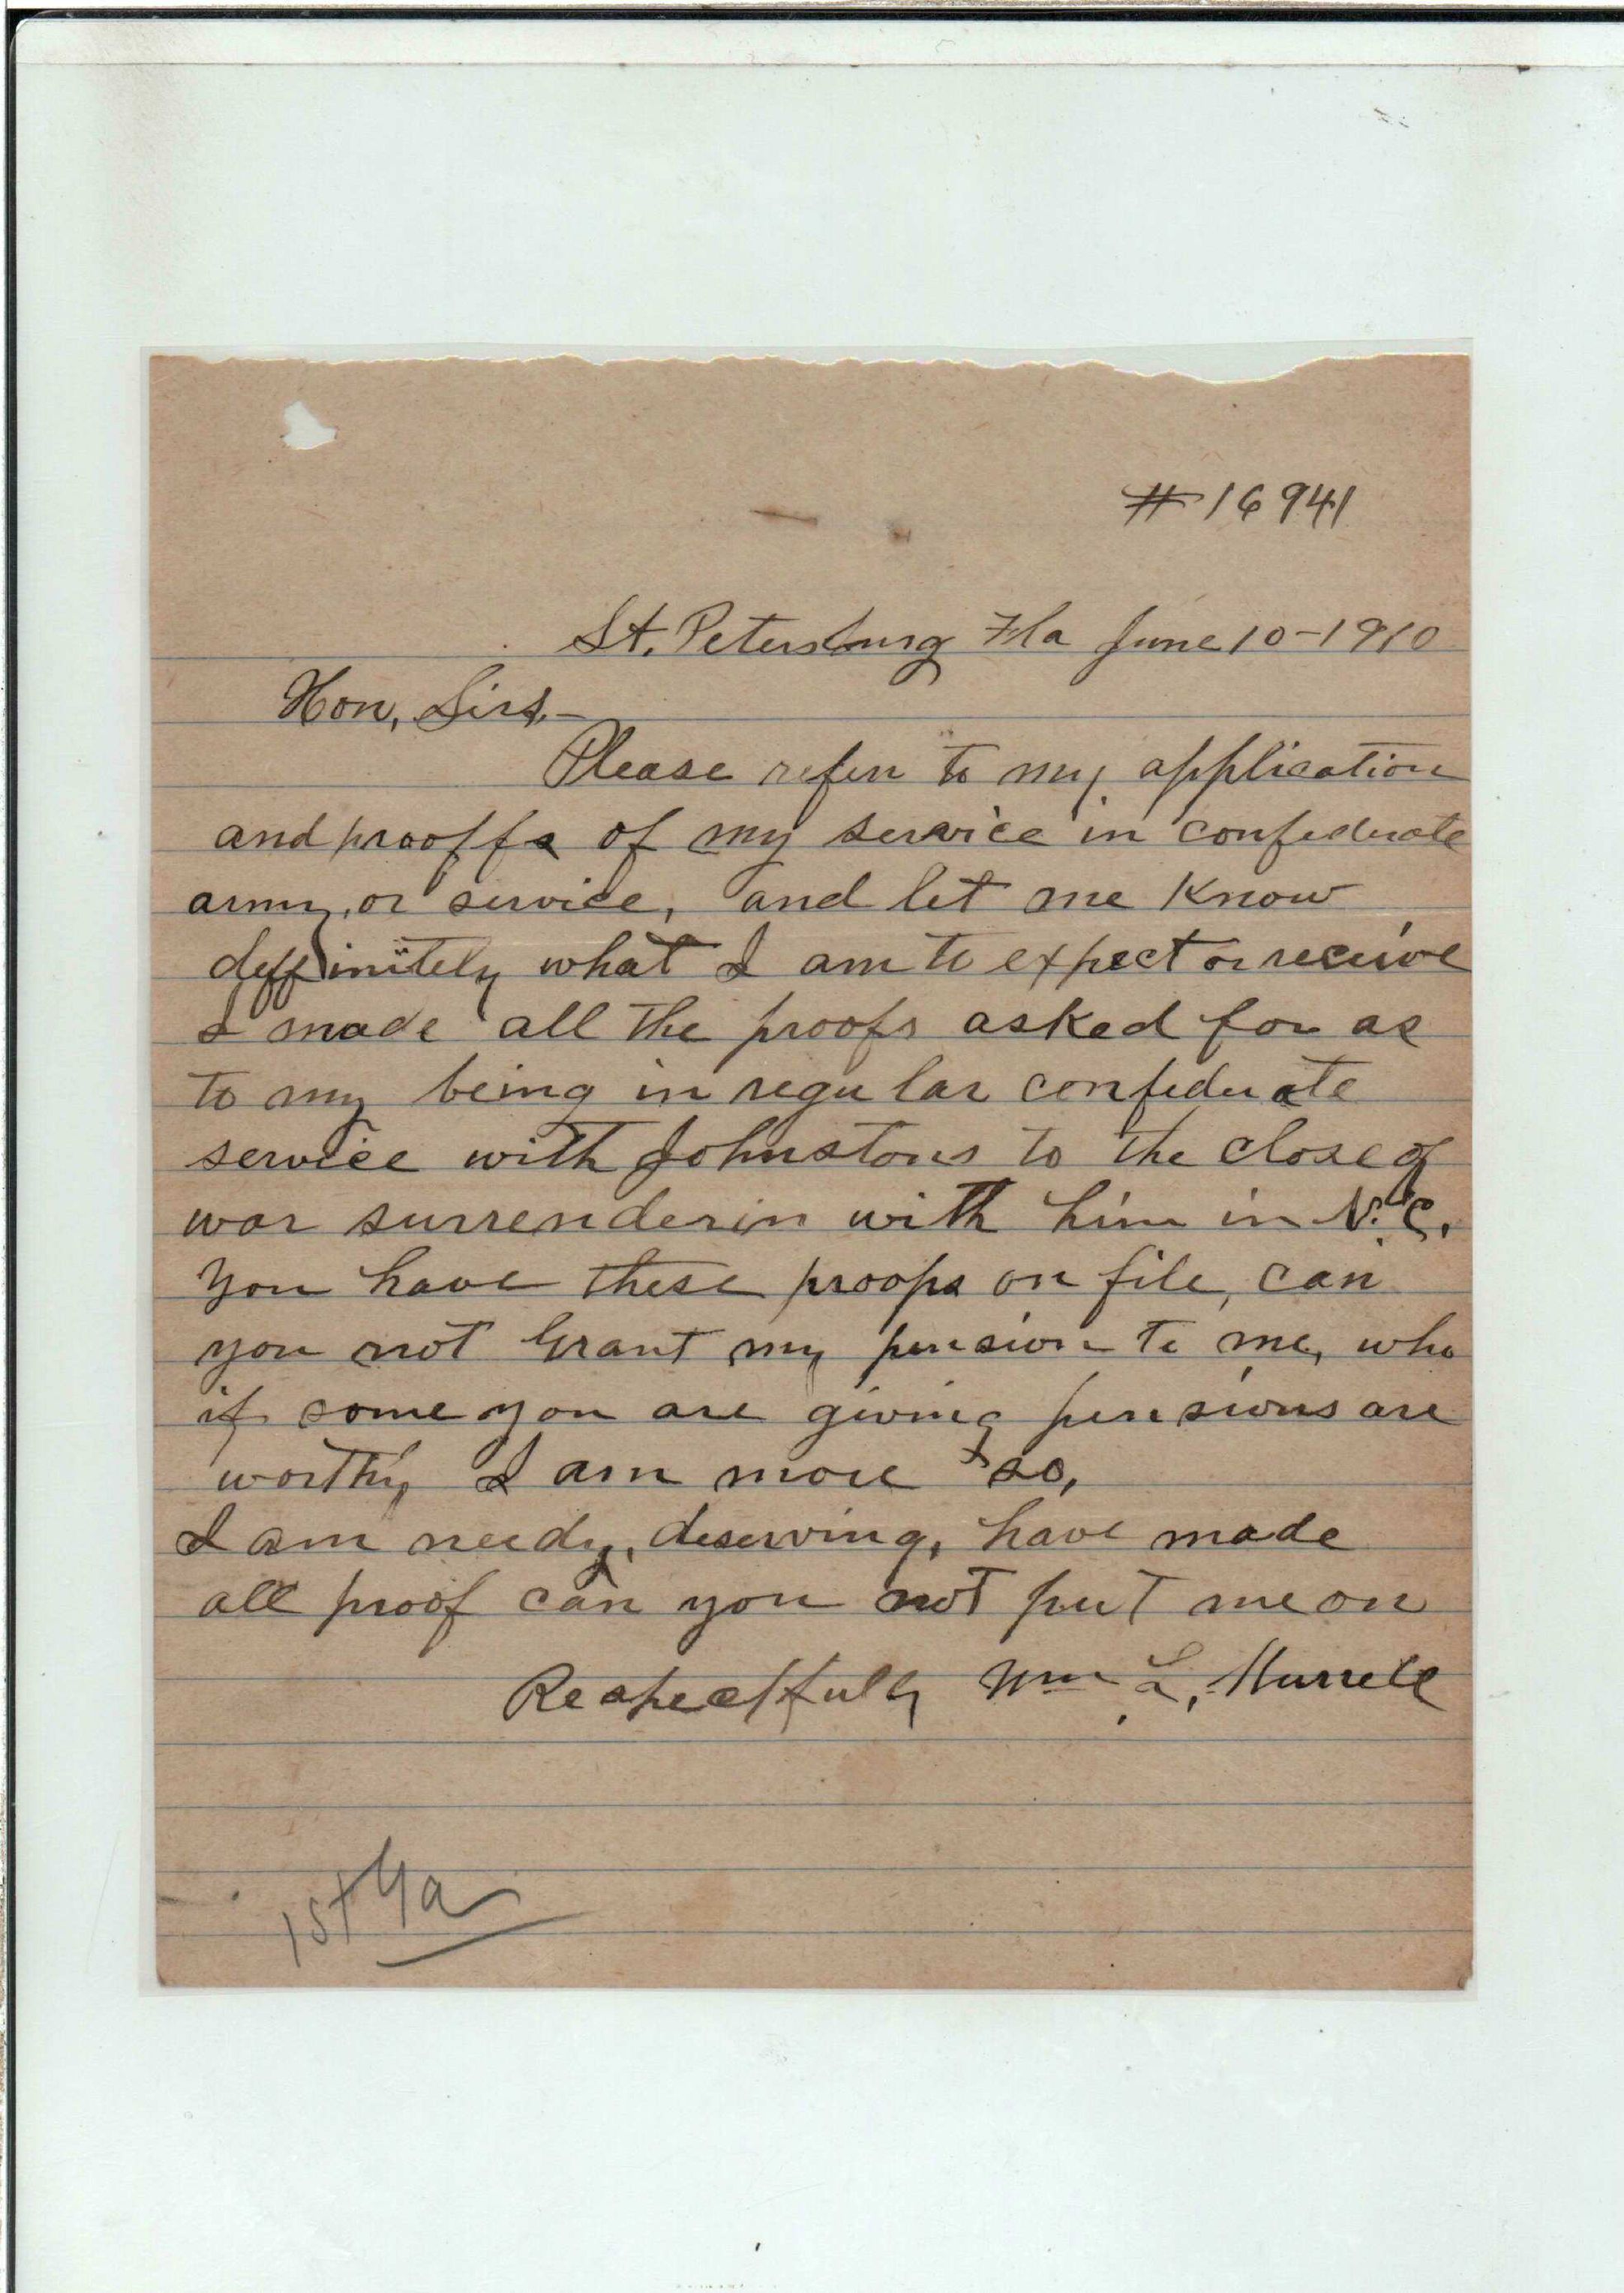 # 16941
St. Petersburg Fla June 10-1910
Hon, Sirs,-
Please refer to my application
and prooffs of my service in confederate
army, or service, and let me Know
deffinitely what I am to expect or receive
I made all the proofs asked for as
to my being in regular confederate
service with Johnstons to the close of
war surrenderin with him in N.C.
You have these proofs on file, can
you not Grant my pension to me, who
if some you are giving pensions are
worthy I am more so,
I am needy, deserving, have made
all proof can you not put me on
Respectfully Wm L, Murrell
1st Ga